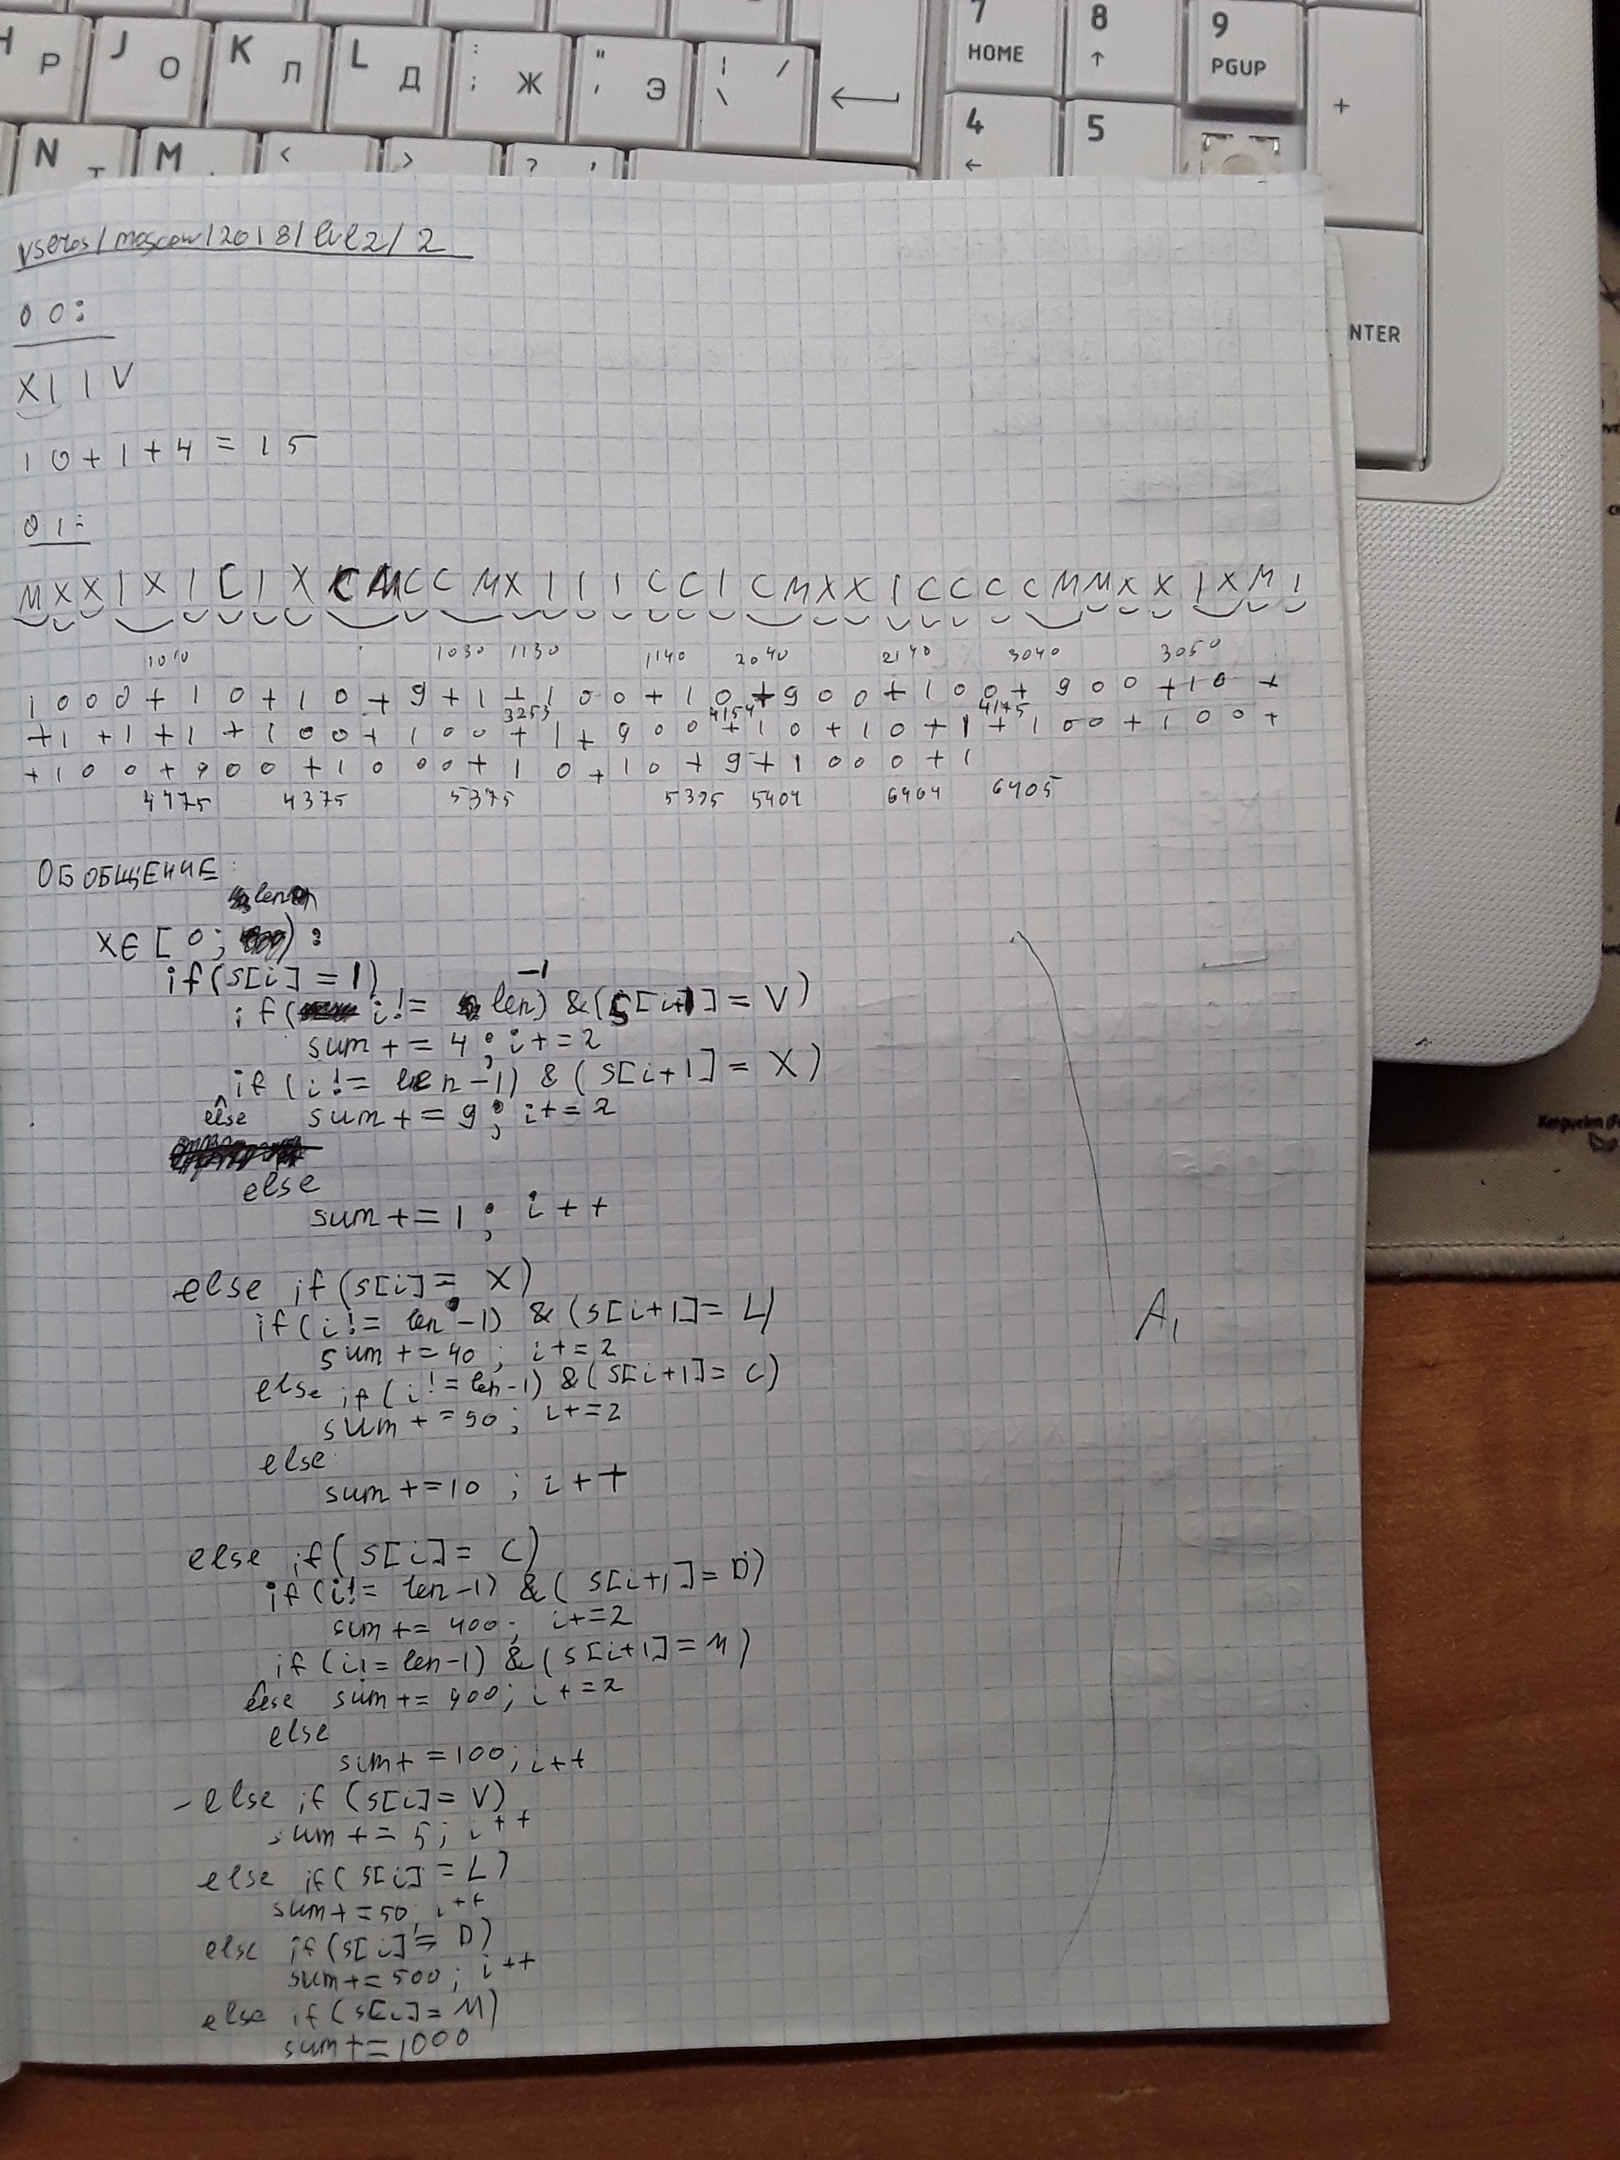 7 8 9
H Р J О K Л L Д : ; Ж " ' Э | / \ HOME ↑ PGUP
4 5 +
N Т M < > ? , ←
ENTER
vseros/moscow/2018/lvl2/2
00:
XIIV
10+1+4=15
01:
MXXIXICIXCMCCMXIIICCICMXXICCCCMMXXIXMI
1010 1030 1130 1140 2040 2140 3040 3050
1000+10+10+9+1+100+10+900+100+900+10+
3253 4154 4175
+1+1+1+100+100+1+900+10+10+1+100+100+
+100+900+1000+10+10+9+1000+1
4475 4375 5375 5395 5404 6404 6405
ОБОБЩЕНИЕ:
len
X∈[0; ):
if(s[i]=1)
-1
if(i!= len) &(s[i+1]=V)
sum+=4; i+=2
if(i!=len-1) & (s[i+1]=X)
else sum+=9; i+=2
else
sum+=1; i++
else if(s[i]=X)
if(i!=len-1) & (s[i+1]=L)
A1
sum+=40; i+=2
else if(i!=len-1) &(s[i+1]=C)
sum+=90; i+=2
else
sum+=10; i++
else if(s[i]=C)
if(i!=len-1) & (s[i+1]=D)
sum+=400; i+=2
if(i!=len-1) &(s[i+1]=M)
else sum+=900; i+=2
else
sum+=100; i++
- else if(s[i]=V)
sum+=5; i++
else if(s[i]=L)
sum+=50; i++
else if(s[i]=D)
sum+=500; i++
else if(s[i]=M)
sum+=1000